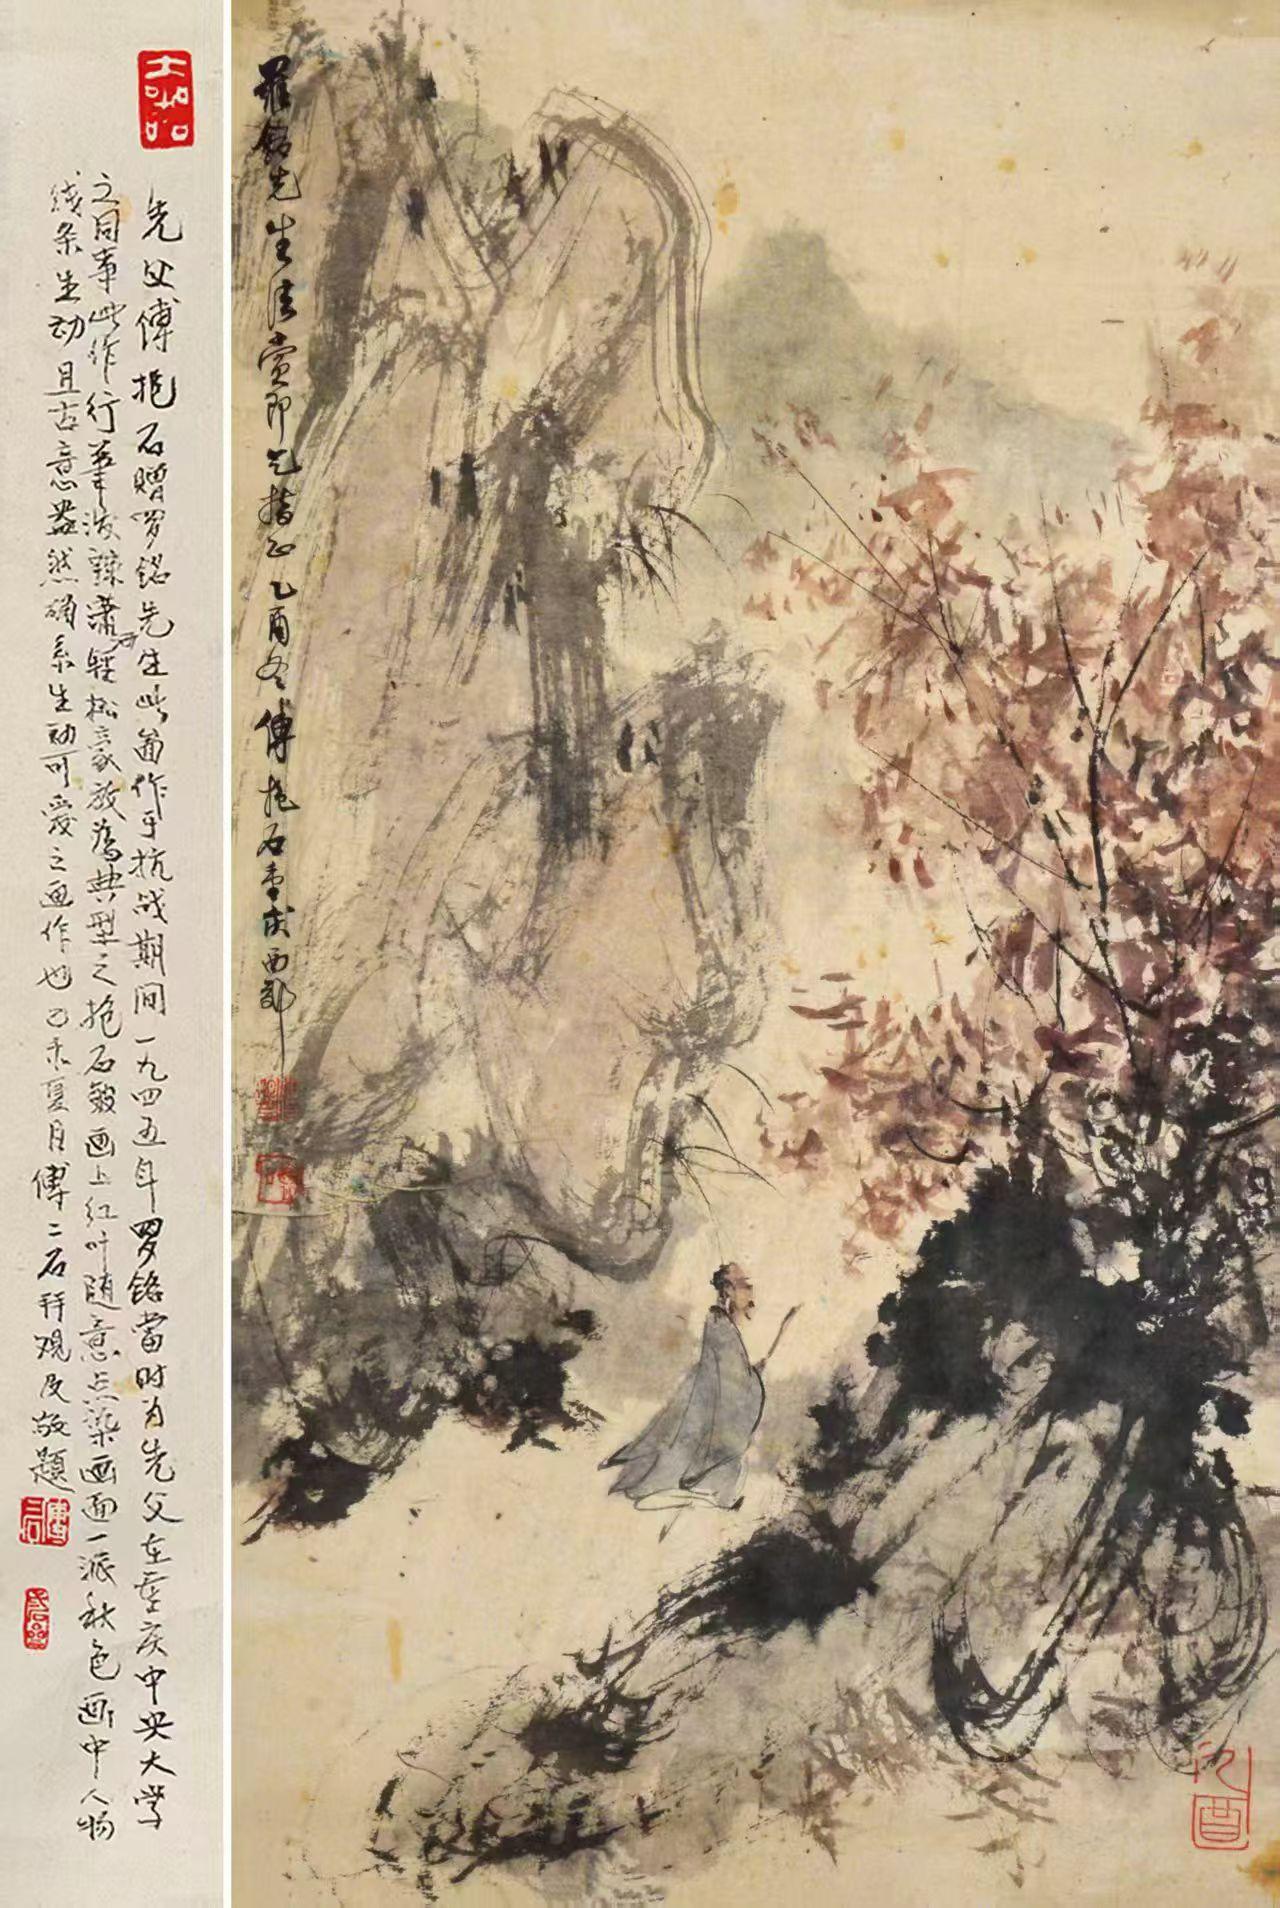 先父傅抱石赠罗铭先生此图作于抗战期间一九四五年罗铭当时为先父在重庆中央大学
之同事此作行笔泼辣潇洒轻松豪放为典型之抱石皴画上红叶随意点染画面一派秋色画中人物
线条生动且古意盎然确系生动可爱之画作也 乙未夏月傅二石拜观及敬题
傅二石
罗铭先生清赏即乞指正乙酉冬傅抱石重庆西郊